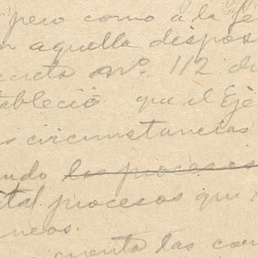 pero como a la fe
n aquella dispos
creto Nº. 112 de
tableció que el Ejé
s circunstancias
ndo los procesos
tal procesos que
neos.
cuenta las con